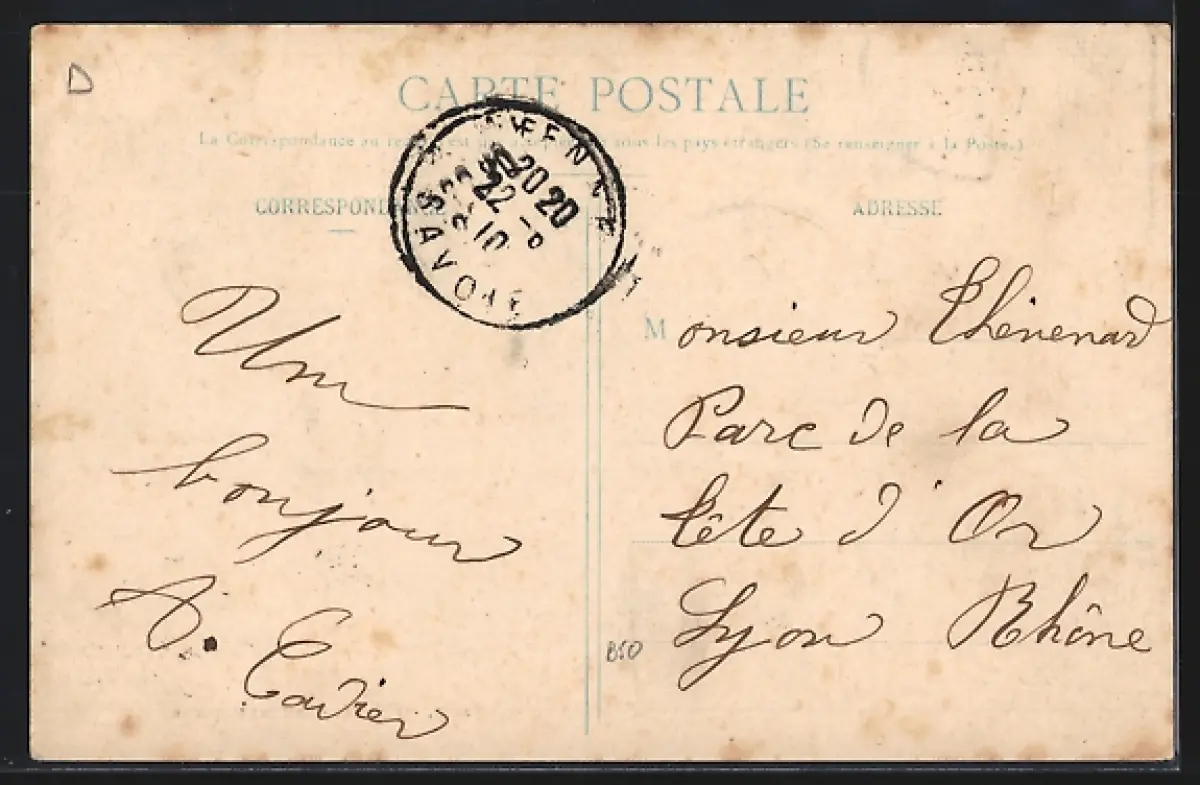 D
CARTE POSTALE
La Correspondance au recto est pas acceptée par tous les pays étrangers (Se renseigner à la Poste.)
CORRESPONDANCE
ADRESSE
SAVOIE
20 20
22 -8
10
Un
bonjour
Monsieur Thénenard
Parc de la
Tête d'Or
Lyon Rhône
850